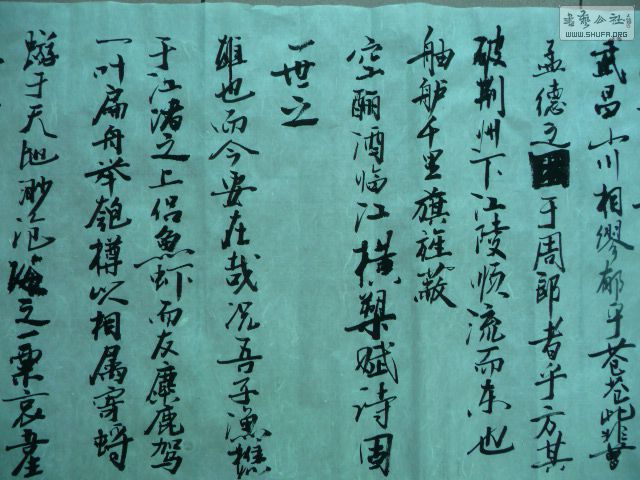 書藝公社
WWW.SHUFA.ORG
武昌山川相缪郁乎苍苍此非
孟德之于周郎者乎方其
破荆州下江陵顺流而东也
舳舻千里旗旌蔽
空酾酒临江横槊赋诗固
一世之
雄也而今安在哉况吾子渔樵
于江渚之上侣魚虾而友麋鹿驾
一叶扁舟举匏樽以相属寄蜉
蝣于天地渺沧海之一粟哀吾生